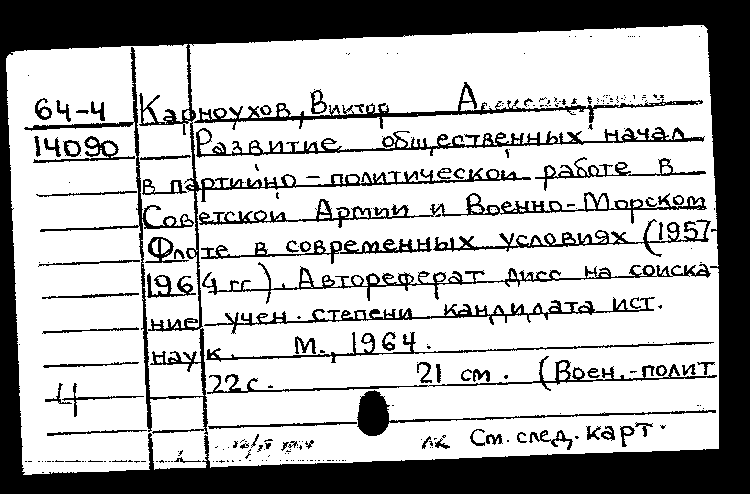 64-4 Карноухов, Виктор Александрович
14090 Развитие общественных начал
в партийно-политической работе в
Советской Армии и Военно-Морском
Флоте в современных условиях (1957-
1964 гг). Автореферат дисс на соиска-
ние учен. степени кандидата ист.
наук. М., 1964.
22 с. 21 см. (Воен.-полит
Ч
См. след. карт.